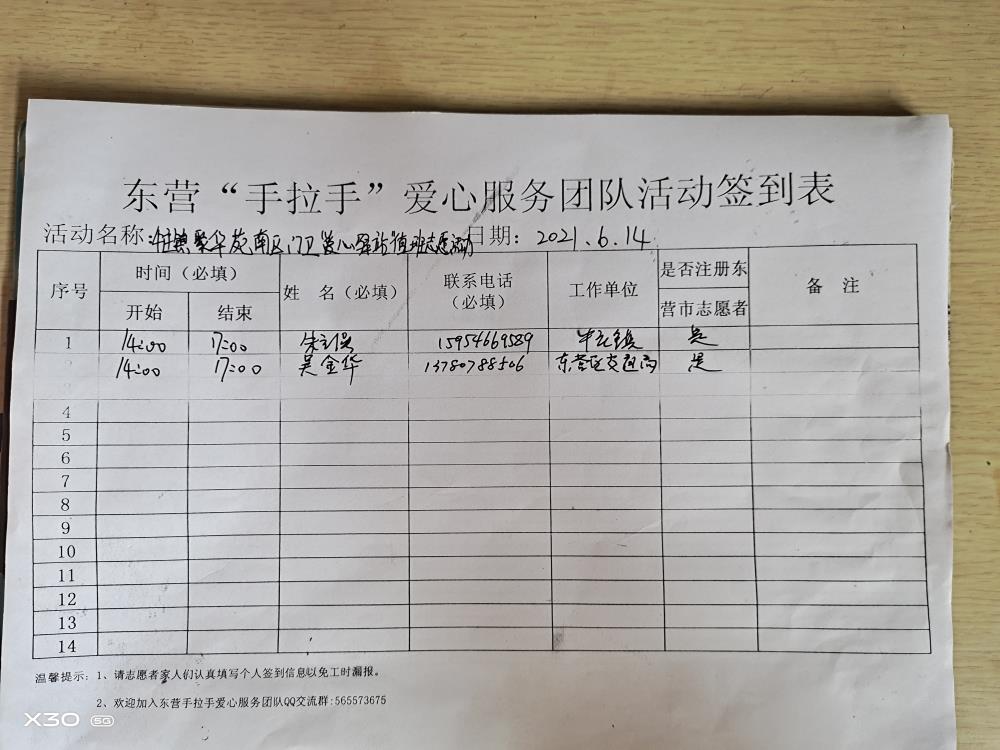 东营“手拉手”爱心服务团队活动签到表
活动名称: 牛镇聚华苑南区门卫爱心驿站值班志愿活动 日期: 2021.6.14
序号 时间（必填） 姓 名（必填） 联系电话（必填） 工作单位 是否注册东营市志愿者 备 注
开始 结束
1 14:00 17:00 15954669589 牛庄镇 是
14:00 17:00 吴金华 13780788506 东营区交通局 是
4
5
6
7
8
9
10
11
12
13
14
温馨提示: 1、请志愿者家人们认真填写个人签到信息以免工时漏报。
2、欢迎加入东营手拉手爱心服务团队QQ交流群:565573675
X30 5G